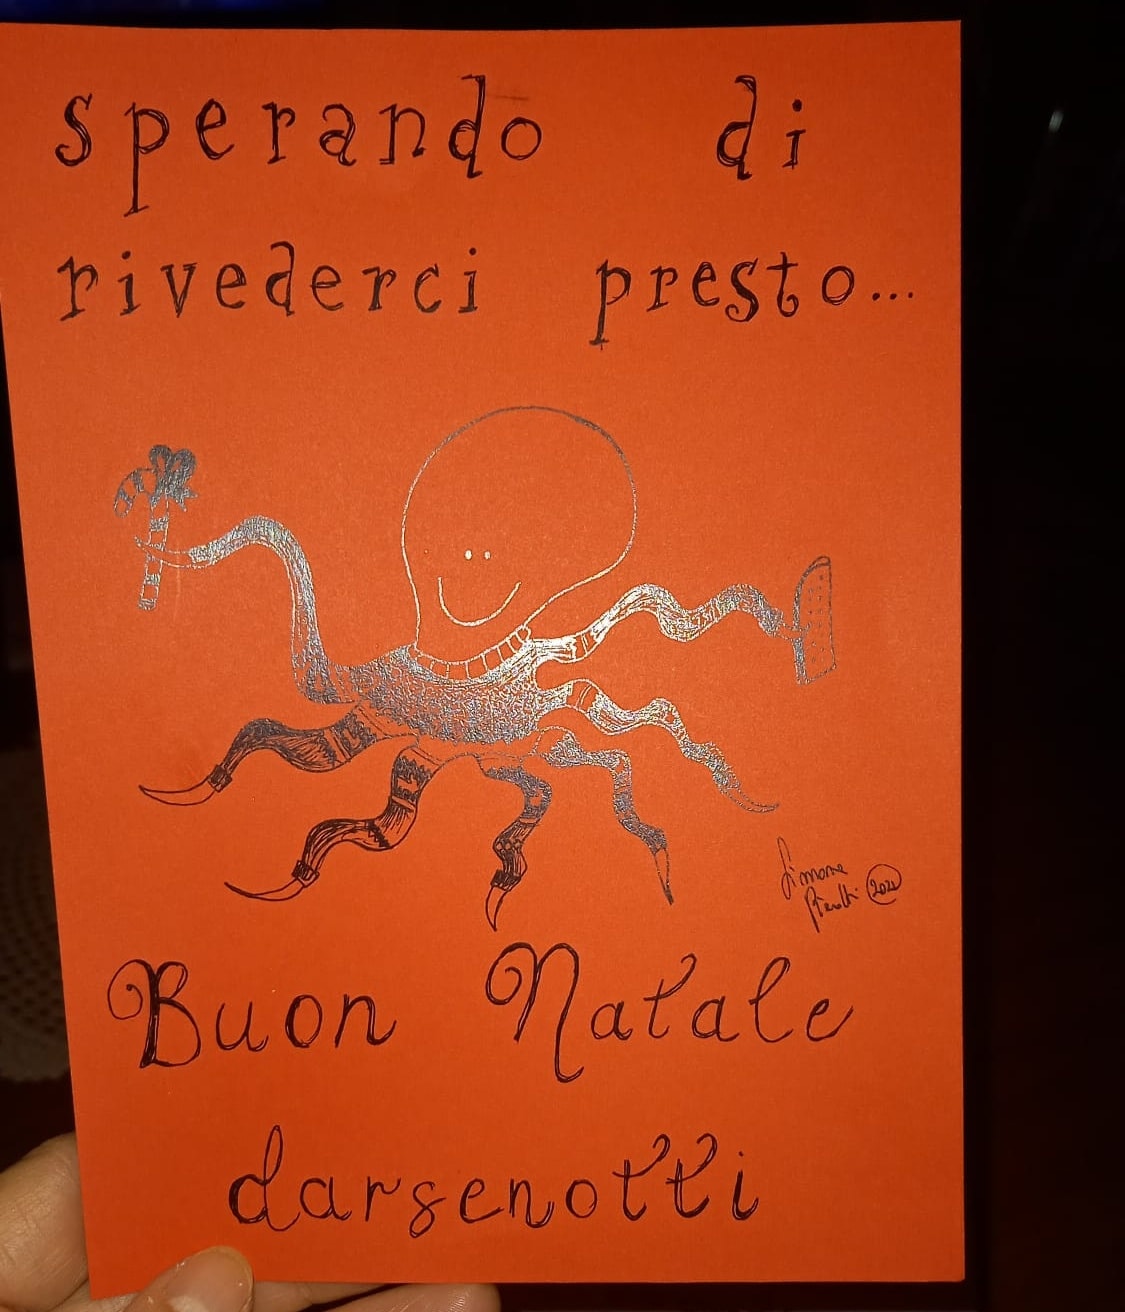 sperando di
rivederci presto...
Simone
2020
Buon Natale
darsenotti